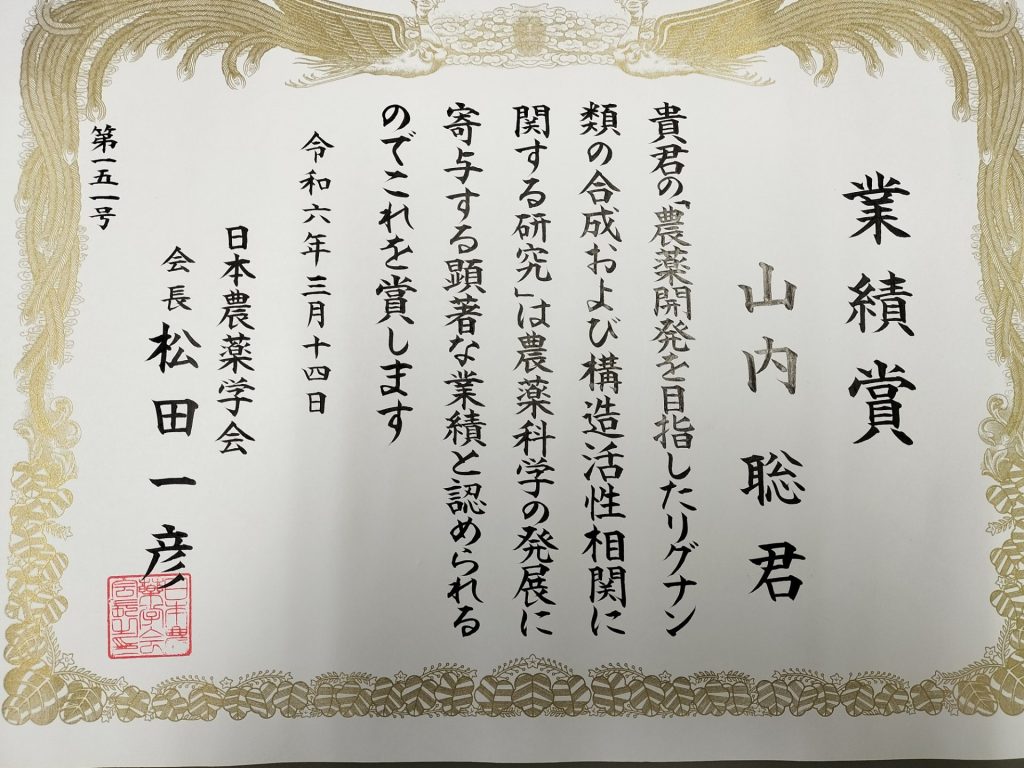 業績賞
山内聡君
貴君の「農薬開発を目指したリグナン
類の合成および構造活性相関に
関する研究」は農薬科学の発展に
寄与する顕著な業績と認められる
のでこれを賞します
令和六年三月十四日
日本農薬学会
会長 松田一彦
第一五一号